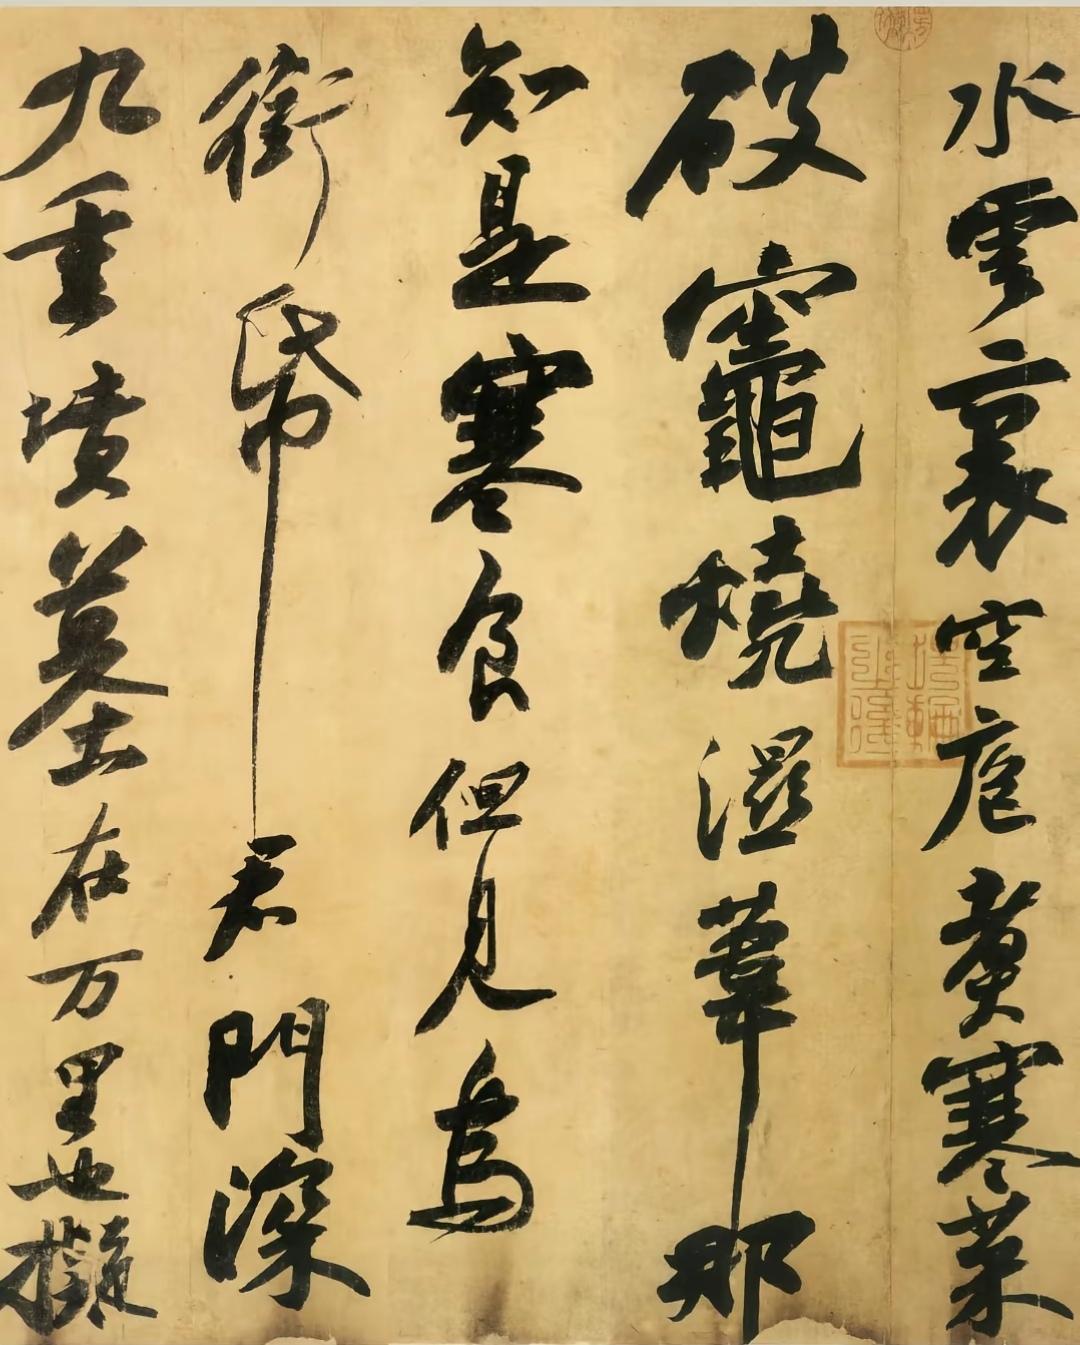 水雲裏空庖煑寒菜
破竈燒濕葦那
知是寒食但見烏
銜帋君門深
九重墳墓在万里也擬
埋輪之後